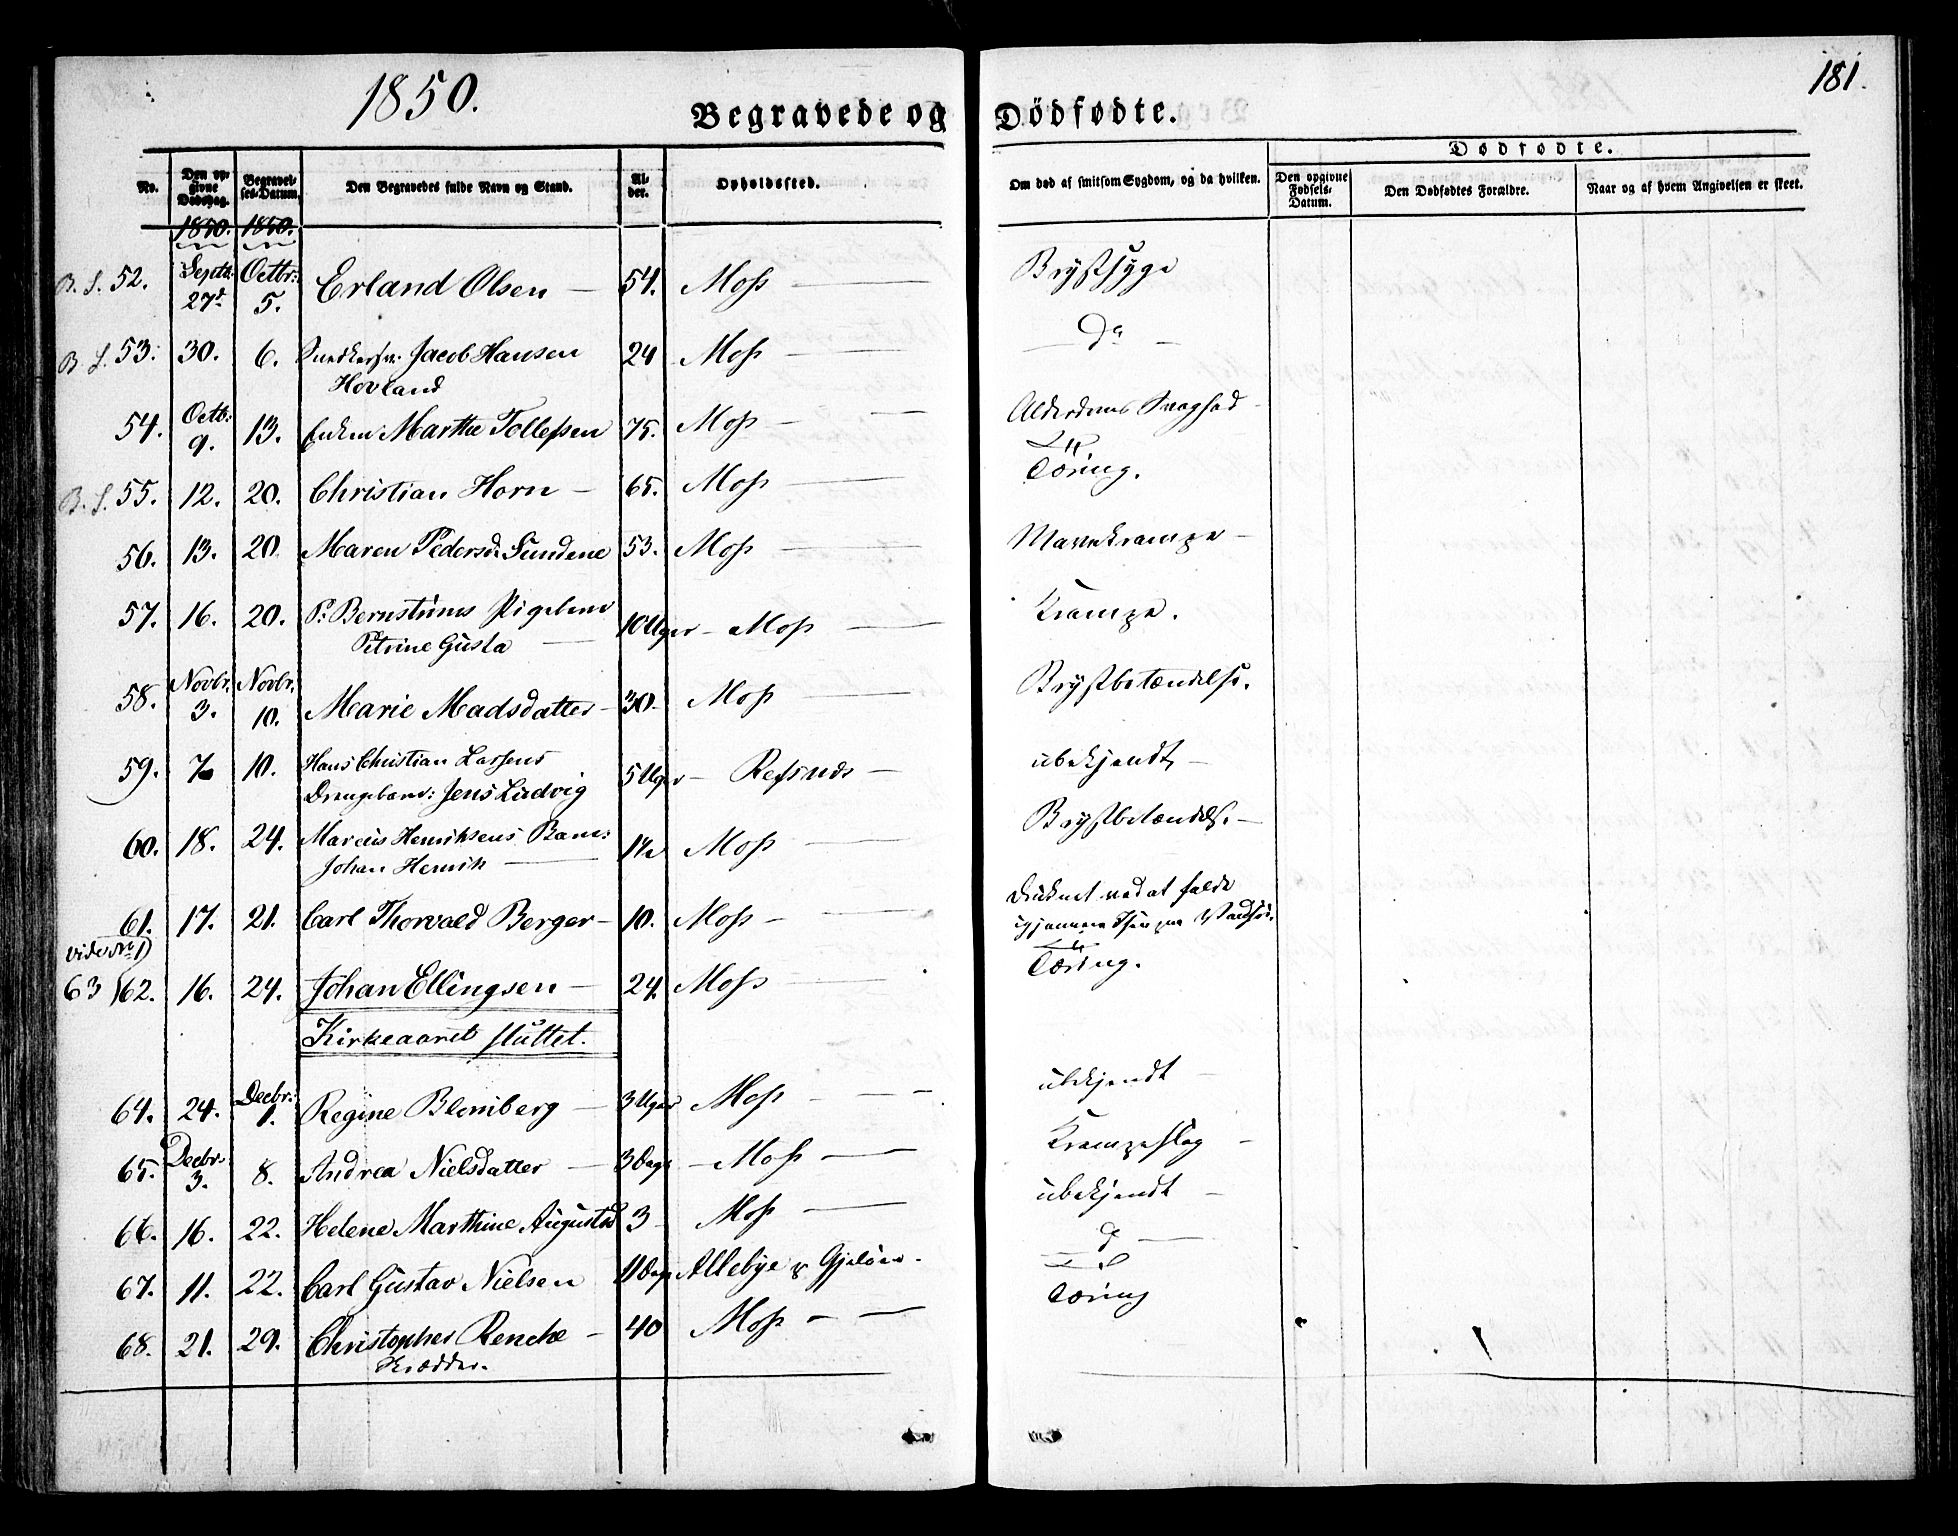 1850.
181.
Begravede og Dödfødte.
No. Den opgivne Dødsdag. Begravelses-Datum. Den Begravedes fulde Navn og Stand. Alder. Opholdssted. Om død af smitsom Sygdom, og da hvilken. Dødfødte. Den opgivne Fødsels-Datum. Den Dødfødtes Forældre. Naar og af hvem Angivelsen er skeet.
1850. 1850.
B. S. 52. Septb: 27d. Octbr: 5. Erland Olsen 54. Moss Brystsyge
B S. 53. 30. 6. Jacob Hansen 24 Moss do
Hovland
54. Octb: 9. 13. Enken Marthe Tollefsen 75. Moss Alderdoms Svaghed
B. S. 55. 12. 20. Christian Horn 65. Moss Tæring.
56. 13. 20 Maren Pedersd: Sundene 53. Moss Mavekrampe
57. 16. 20. P: Bernstrøms Pigebarn 10 Uger Moss Krampe.
Petrine Gusta
58. Novbr. 3. Novbr. 10. Marie Madsdatter 30 Moss Brystbetændelse.
59. 7 10. Hans Christian Larsens 5 Uger Refsnes ubekjendt
Drengebarn: Jens Ludvig
60. 18. 24. Marcus Henriksens Barn: Moss Brystbetændelse
Johan Henrik
61. 17. 21. Carl Thorvald Berger 10. Moss Druknet ved at falde
igjennem Isen paa Vandsøe.
vide No 1)
63 62. 16. 24. Johan Ellingsen 24. Moss Tæring.
Kirkeaaret sluttet.
64. 24. Decbr: 1. Regine Blomberg 3 Uger Moss ubekjendt
65. Decbr. 3. 8. Andrea Nielsdatter 3 Dage Moss Krampeslag
66. 16. 22. Helene Marthine Augustad 3 Moss ubekjendt
67. 11. 22. Carl Gustav Nielsen 11 Dage Allebye p Gjeløen do
68. 21. 29. Christopher Renche 40 Moss Tæring
Skrædder.